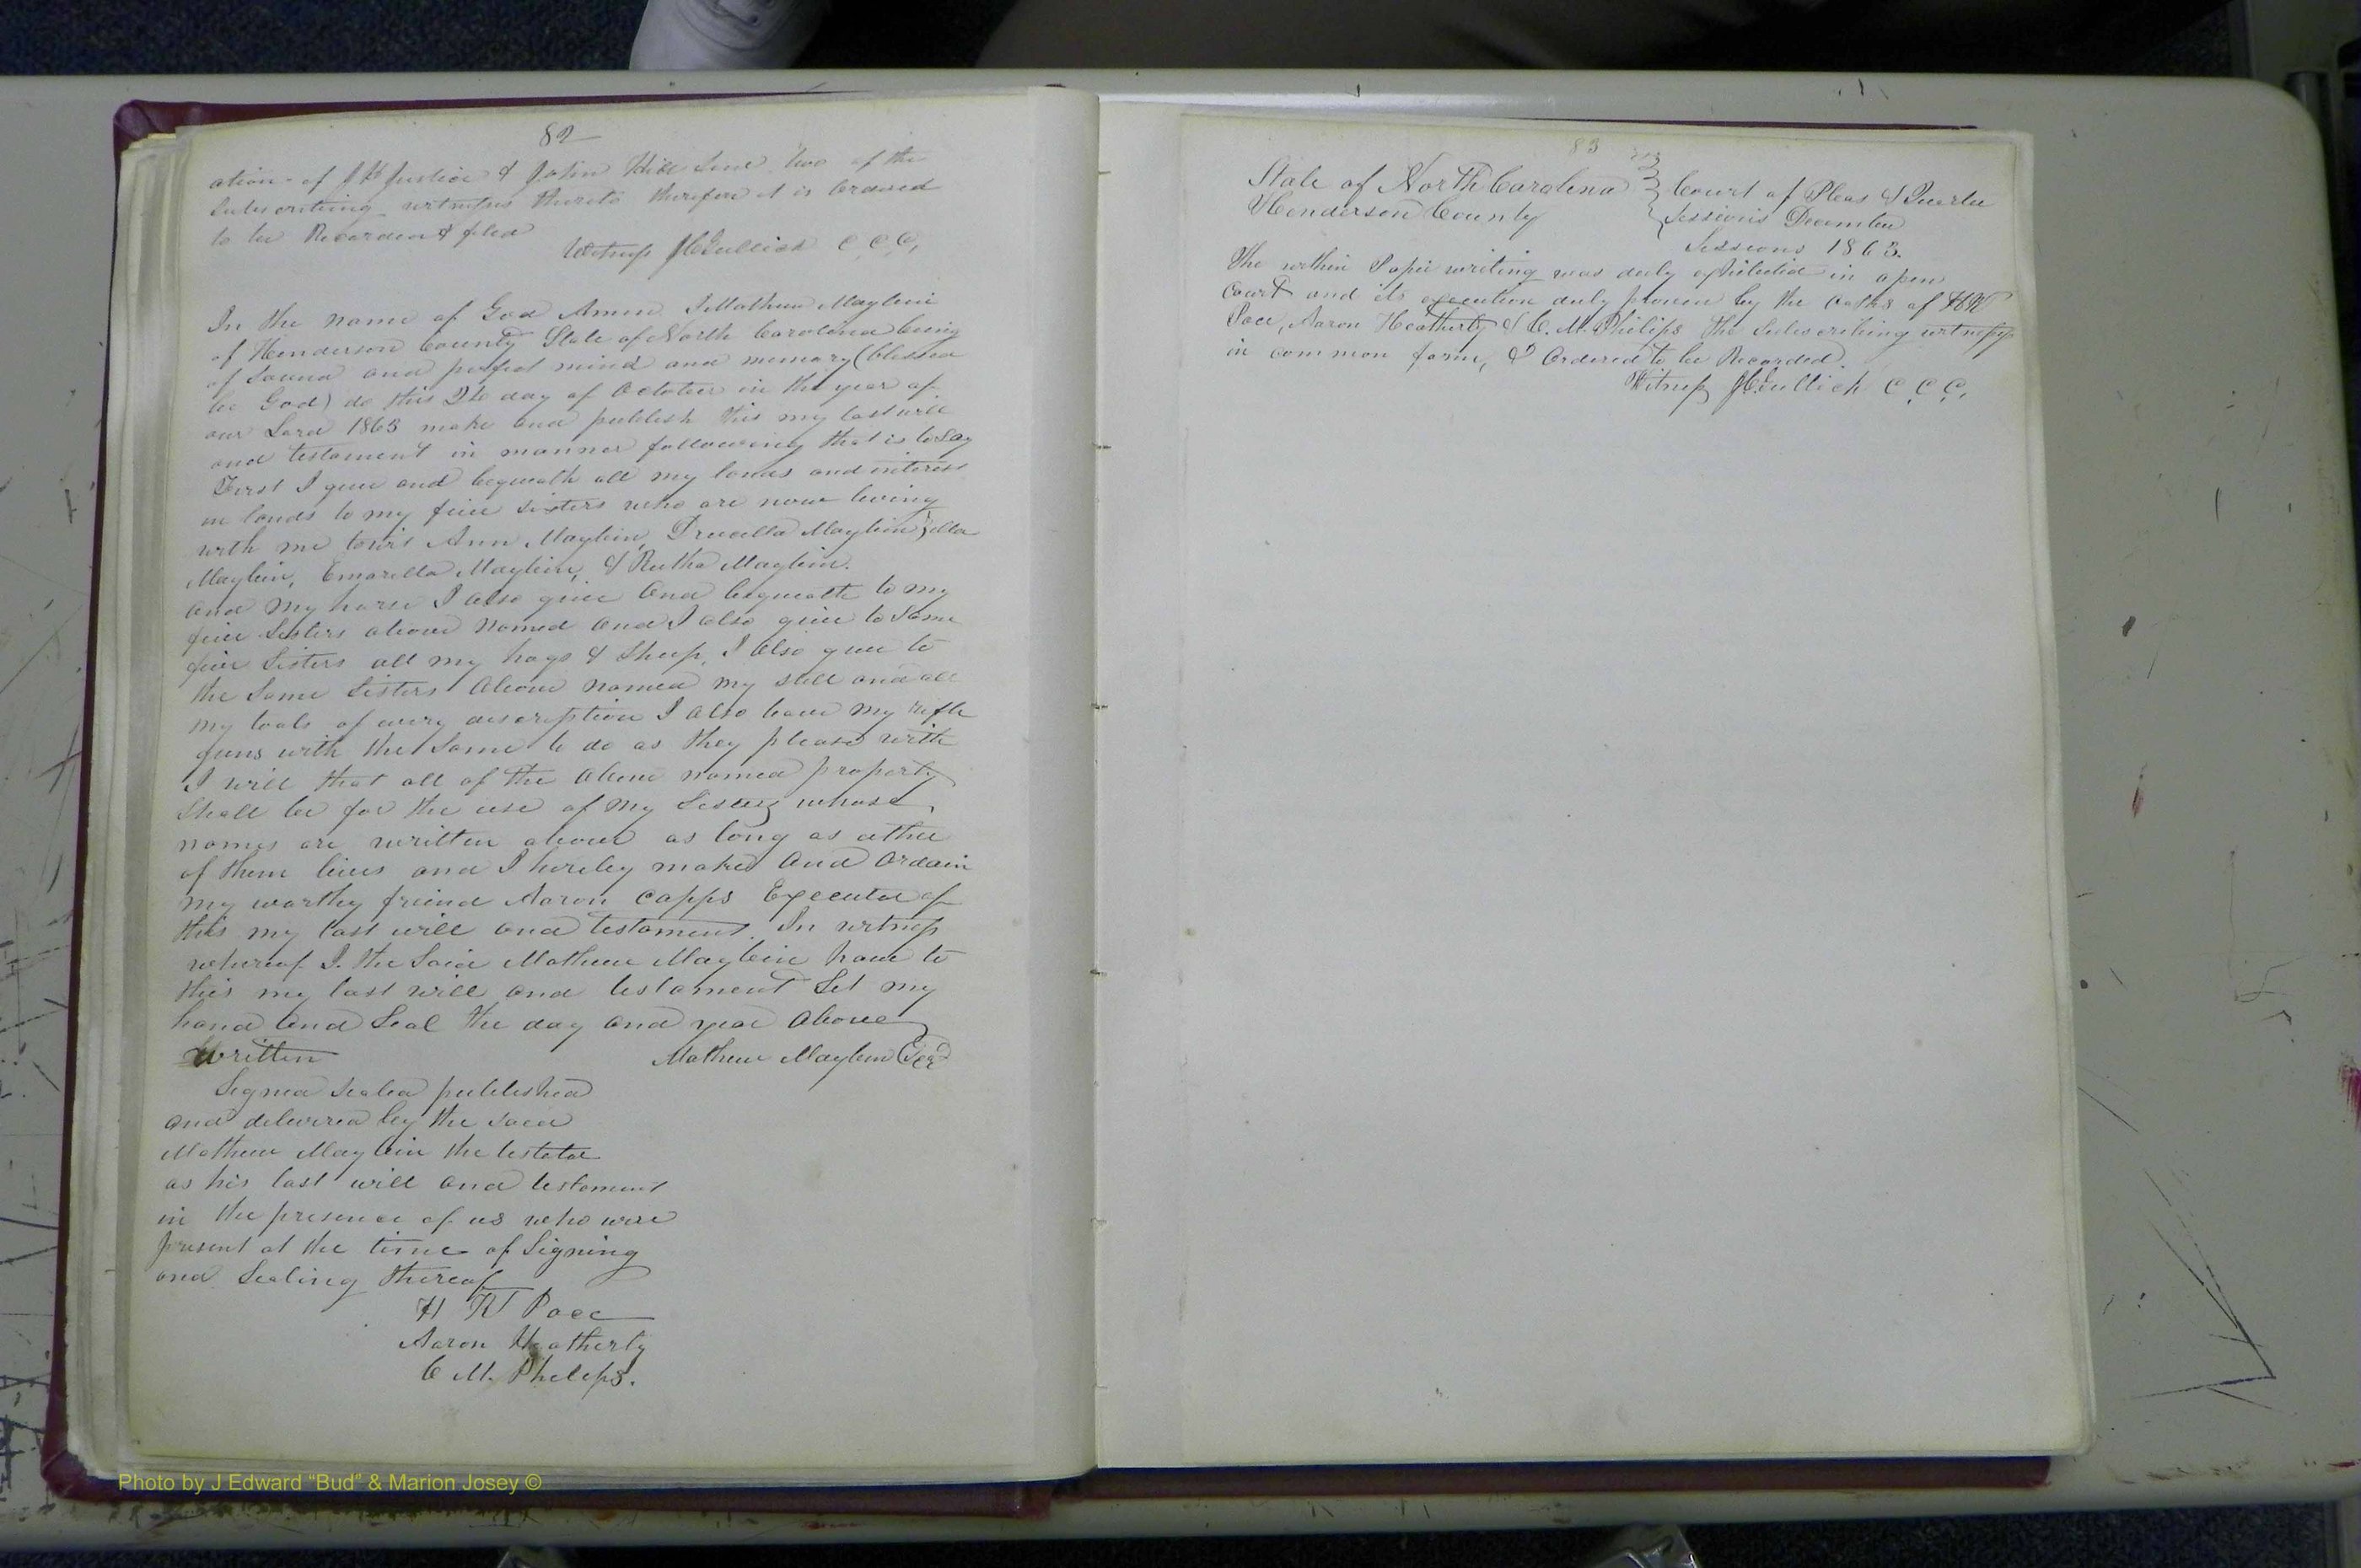 82
ation of J H Justice & John Hill Send two of the
Subscribing witnesses thereto therefore it is Ordered
to be Recorded & filed
Witness J C Gullick C.C.C.
In the name of God Amen I Mathew Maybin
of Henderson County State of North Carolina being
of Sound and perfect mind and memory (blessed
be God) do this day of October in the year of
our Lord 1863 make and publish this my last will
and testament in manner following that is to say
First I give and bequeath all my lands and interest
in lands to my five sisters who are now living
with me towit Ann Maybin, Drucilla Maybin,
Maybin, Emarilla Maybin, & Rutha Maybin.
and my horse I also give and bequeath to my
five Sisters above named and I also give to Same
five Sisters all my hogs & Sheep, I also give to
the Same Sisters above named my still and all
my tools of every discription I also leave my rifle
guns with the Same to do as they please with
I will that all of the above named property
Shall be for the use of my Sisters whose
names are written above as long as either
of them lives and I hereby make and Ordain
my worthy friend Aaron Capps Executor of
this my last will and testament. In witness
whereof I. the Said Mathew Maybin have to
this my last will and testament Set my
hand and Seal the day and year above
written Mathew Maybin (Seal)
Signed Sealed published
and deliverred by the said
Mathew Maybin the testator
as his last will and testament
in the presence of us who were
present at the time of Signing
and Sealing thereof
H W Pace
Aaron Heatherly
C M. Phelips.
83
State of North Carolina } Court of Pleas & Quarter
Henderson County } Sessions December
Sessions 1863.
The within Paper writing was duly exhibited in open
Court and its execution duly proven by the oaths of H W
Pace, Aaron Heatherly & C. M. Philips the Subscribing witnesses
in common form, & Ordered to be Recorded.
Witness J C Gullick C.C.C.
Photo by J Edward “Bud” & Marion Josey ©